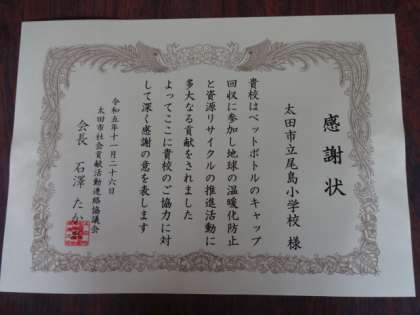 感謝状
太田市立尾島小学校 様
貴校はペットボトルのキャップ
回収に参加し地球の温暖化防止
と資源リサイクルの推進活動に
多大なる貢献をされました
よってここに貴校のご協力に対
して深く感謝の意を表します
令和五年十一月二十六日
太田市社会貢献活動連絡協議会
会長 石澤 たか